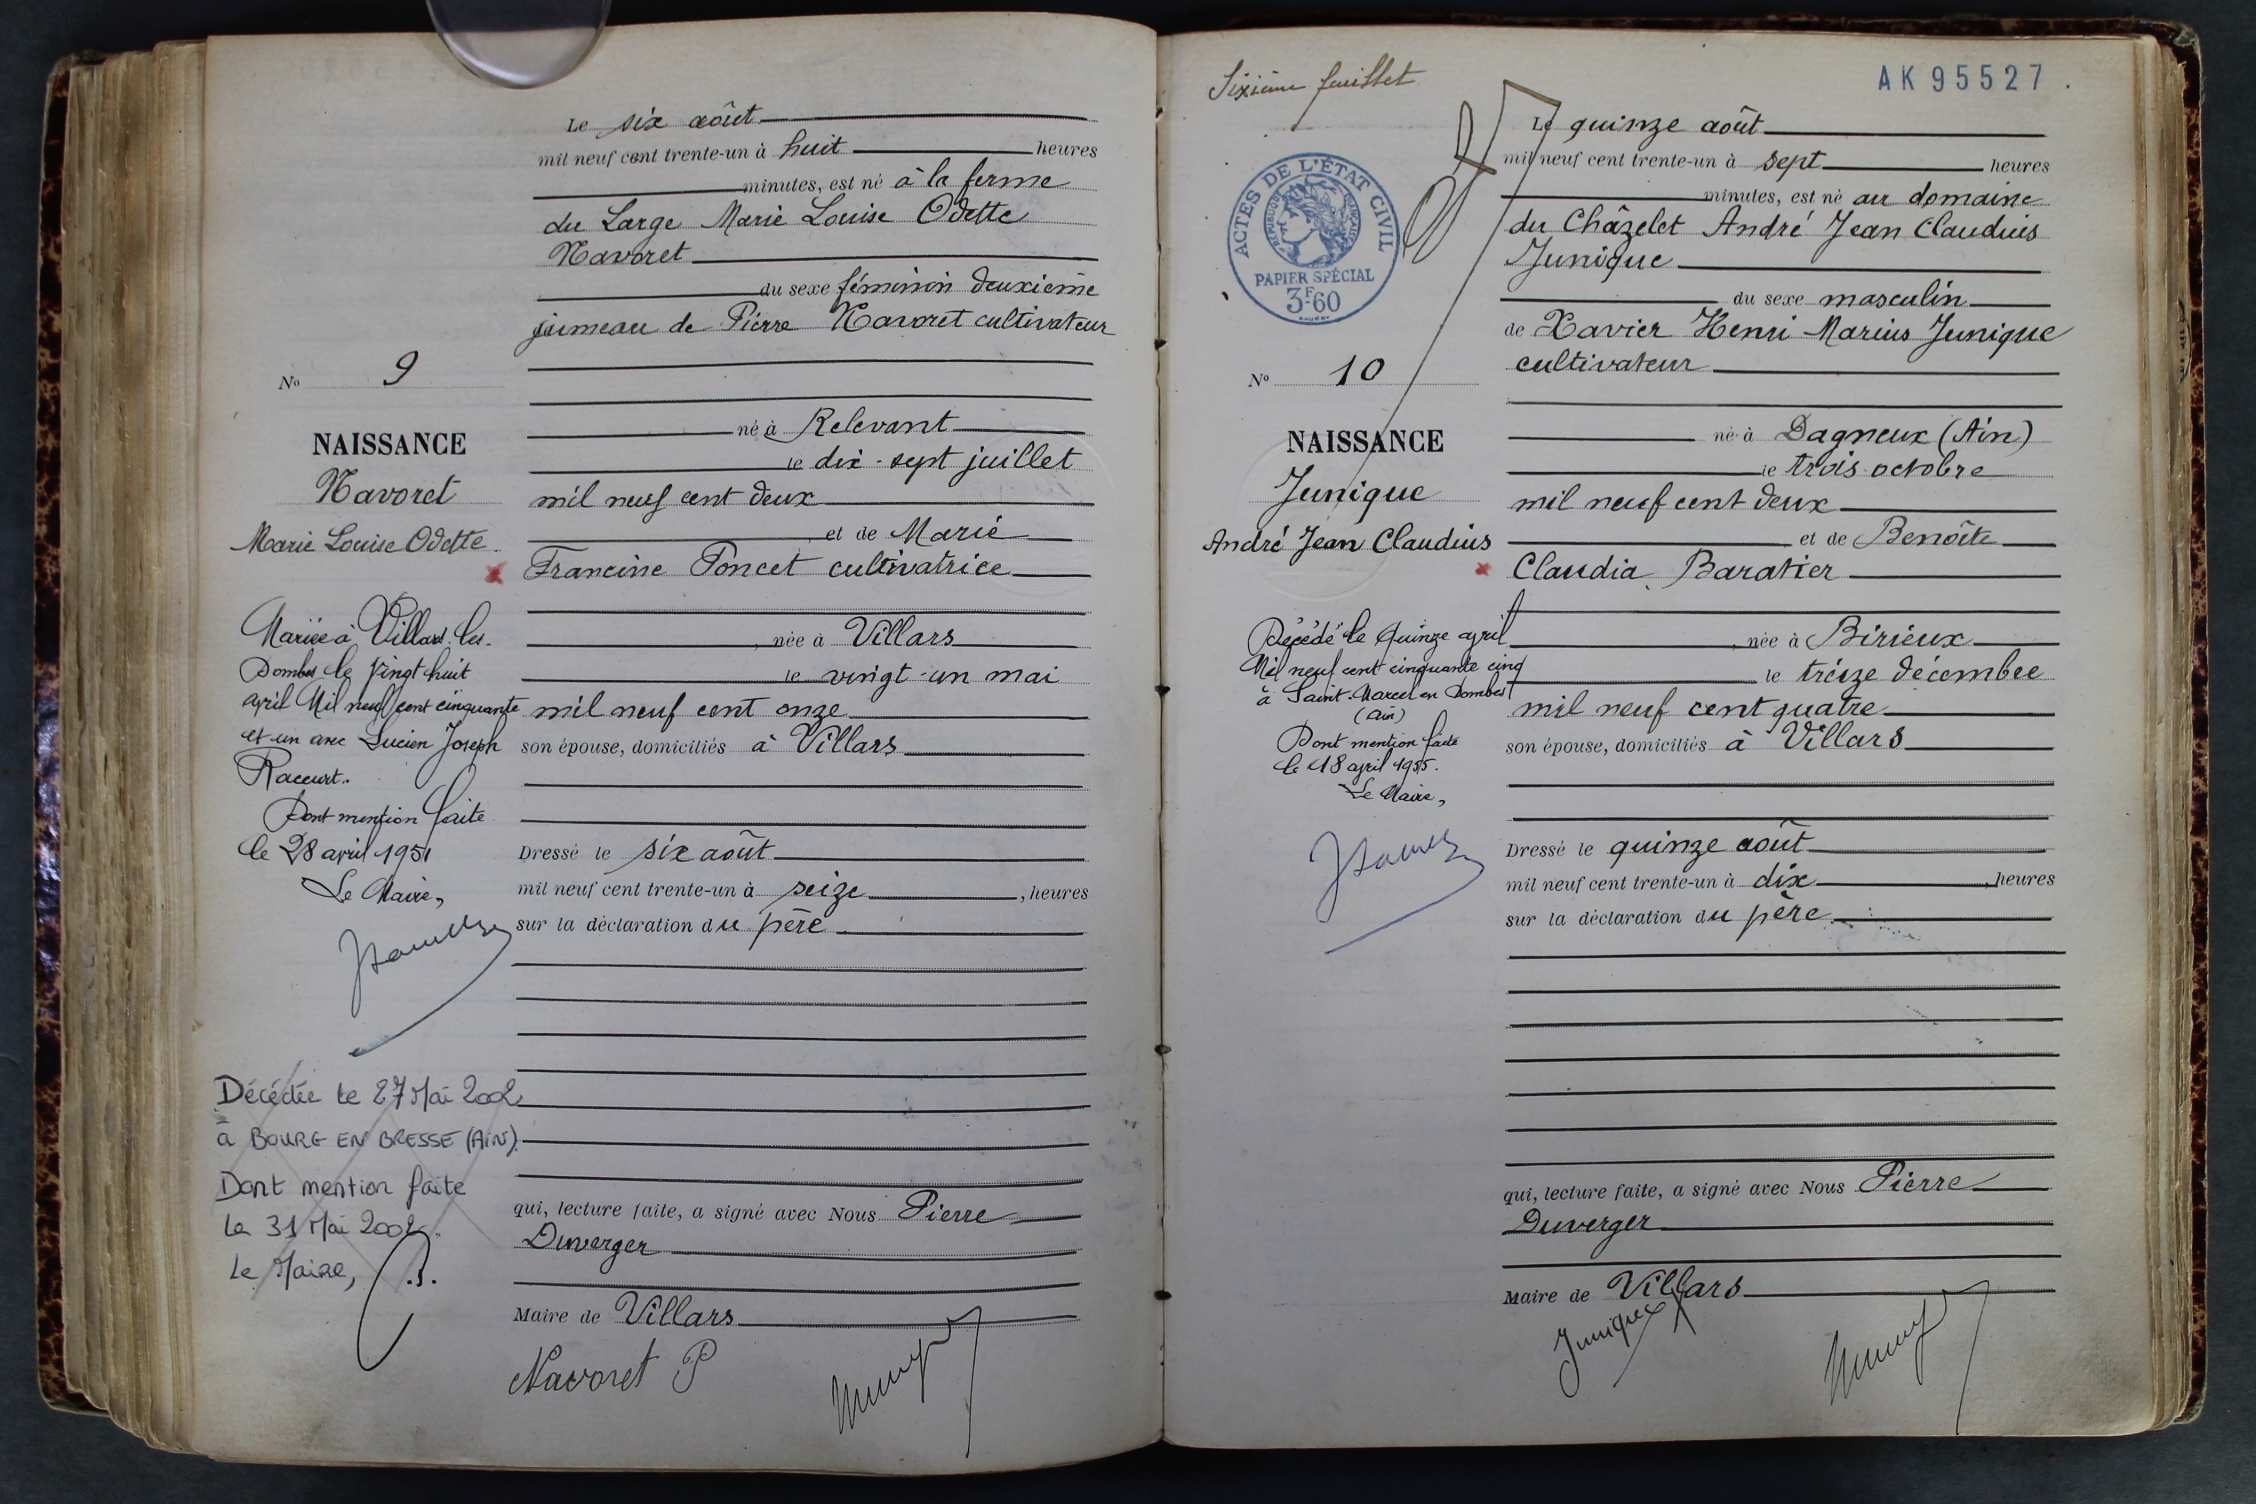 Le six août
mil neuf cent trente-un à huit heures
minutes, est né à la ferme
du Large Marie Louise Odette
Navoret
du sexe féminin deuxième
jumeau de Pierre Navoret cultivateur
né à Relevant
le dix-sept juillet
mil neuf cent deux
et de Marie
Francine Poncet cultivatrice
née à Villars
le vingt-un mai
mil neuf cent onze
son épouse, domiciliés à Villars
Dressé le six août
mil neuf cent trente-un à seize, heures
sur la déclaration du père
qui, lecture faite, a signé avec Nous Pierre
Duverger
Maire de Villars
Navoret P
No 9
NAISSANCE
Navoret
Marie Louise Odette
Mariée à Villars les-
Dombes le vingt huit
avril Mil neuf cent cinquante
et un avec Lucien Joseph
Raccurt.
Dont mention faite
le 28 avril 1951
Le Maire,
Décédée le 27 Mai 2002
à BOURG EN BRESSE (AIN).
Dont mention faite
le 31 Mai 2002.
Le Maire,
Sixième feuillet
AK95527
ACTES DE L'ÉTAT CIVIL
RÉPUBLIQUE FRANÇAISE
PAPIER SPÉCIAL
3F60
Le quinze août
mil neuf cent trente-un à sept heures
minutes, est né au domaine
du Châzelet André Jean Claudius
Junique
du sexe masculin
de Xavier Henri Marius Junique
cultivateur
né à Dagneux (Ain)
le trois octobre
mil neuf cent deux
et de Benoîte
Claudia Baratier
née à Birieux
le treize décembre
mil neuf cent quatre
son épouse, domiciliés à Villars
Dressé le quinze août
mil neuf cent trente-un à dix, heures
sur la déclaration du père
qui, lecture faite, a signé avec Nous Pierre
Duverger
Maire de Villars
Junique X
No 10
NAISSANCE
Junique
André Jean Claudius
Décédé le quinze avril
Mil neuf cent cinquante cinq
à Saint-Marcel en Dombes
(Ain)
Dont mention faite
le 18 avril 1955.
Le Maire,